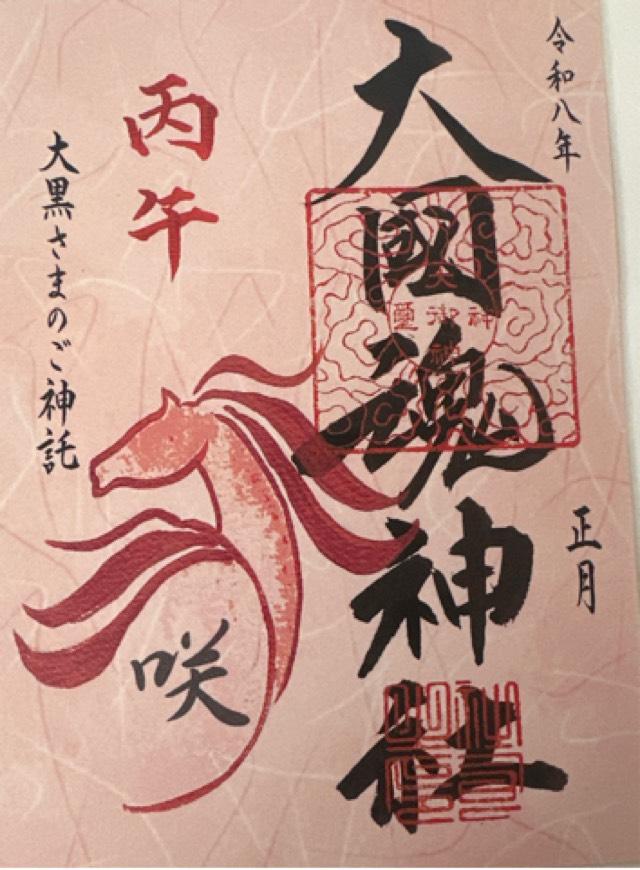 令和八年
正月
大國魂神社
丙午
大黒さまのご神託
咲